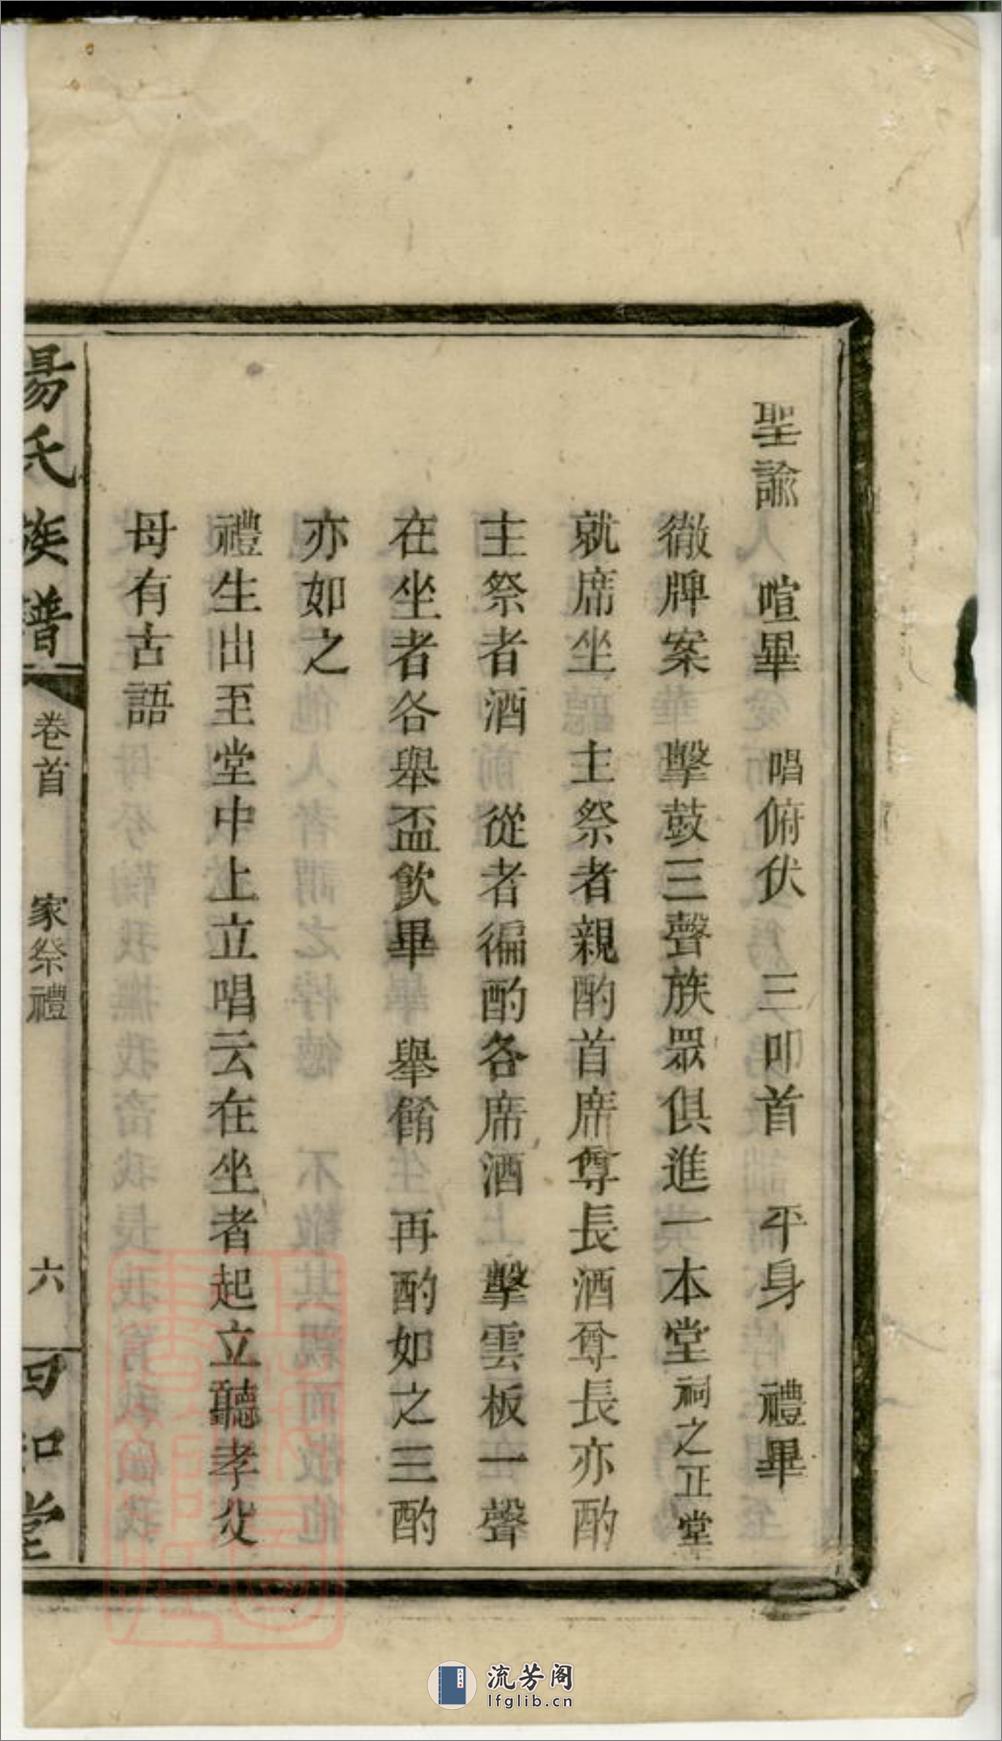 聖諭　喧畢　唱俯伏　三叩首　平身　禮畢
徹牌案　擊鼓三聲族眾俱進一本堂祠之正堂
就席坐　主祭者親酌首席尊長酒尊長亦酌
主祭者酒　從者徧酌各席酒　擊雲板一聲
在坐者各舉盃飲畢　舉餚　再酌如之三酌
亦如之
禮生出至堂中上立唱云在坐者起立聽孝父
母有古語
楊氏族譜　卷首　家祭禮　六　四知堂
流芳阁
lfglib.cn